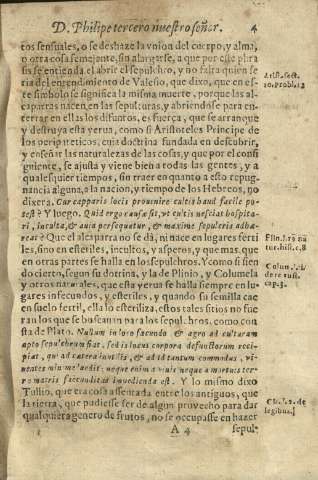 D. Philipe tercero nuestro señor. 4
tos sensuales, o se deshaze la vnion del cuerpo, y alma,
o otra cosa semejante, sin alargarse, a que por esse phra
sis se entienda el abrir el sepulchro, y no falta quien se
ria del entendimiento de Valesio, que dixo, que en es-
te simbolo se significa la misma muerte, porque las al-
caparras nacen en las sepulturas, y abriendose para en-
terrar en ellas los difuntos, es fuerça, que se arranque
y destruya esta yerua, como si Aristoteles Principe de
los peripateticos, cuia doctrina fundada en descubrir,
y enseñar las naturalezas de las cosas, y que por el consi
guiente, se ajusta y viene bien a todas las gentes, y a
qualesquier tiempos, sin traer en quanto a esto repug-
nancia alguna, a la nacion, y tiempo de los Hebreos, no
dixera. Cur capparis locis prouenire cultis haud facile po-
test? Y luego. Quid ergo causæ sit, vt cultis nescias hospita-
ri, inculta, & auia persequatur, & maxime sepulcris adha-
reat? Que el alcaparra no se dà, ni nace en lugares ferti
les, sino en esteriles, incultos, y asperos, y que mas, que
en otras partes se halla en los sepulchros. Y como si sien
do cierto, segun su dotrina, y la de Plinio, y Columela
y otros naturales, que esta yerua se halla siempre en lu-
gares infecundos, y esteriles, y quando su semilla cae
en suelo fertil, ella lo esteriliza, estos tales sitios no fue
ran los que se buscaron para los sepulchros, como con
sta de Platon. Nullum in loro facundo & agro ad culturam
apto sepulchrum fiat, sed is locus corpora defunctorum reci-
piat, qui ad cætera inutilis, & ad id tantum commodus, vi-
uentes minime lædit: neque enim a viuis neque a mortuis ter-
ræ matris fæcunditas impedienda est. Y lo mismo dixo
Tullio, que era cosa assentada entre los antiguos, que
la tierra, que pudiesse ser de algun prouecho para dar
qualquiera genero de frutos, no se occupasse en hazer
A 4 sepul-
Arist. sect.
20. Probl. 12
Plin. l. 19 na
tur. hist. c. 8
Colum. l. 11
de re rusti.
cap. 3.
Cic. l. 2. de
legibus.